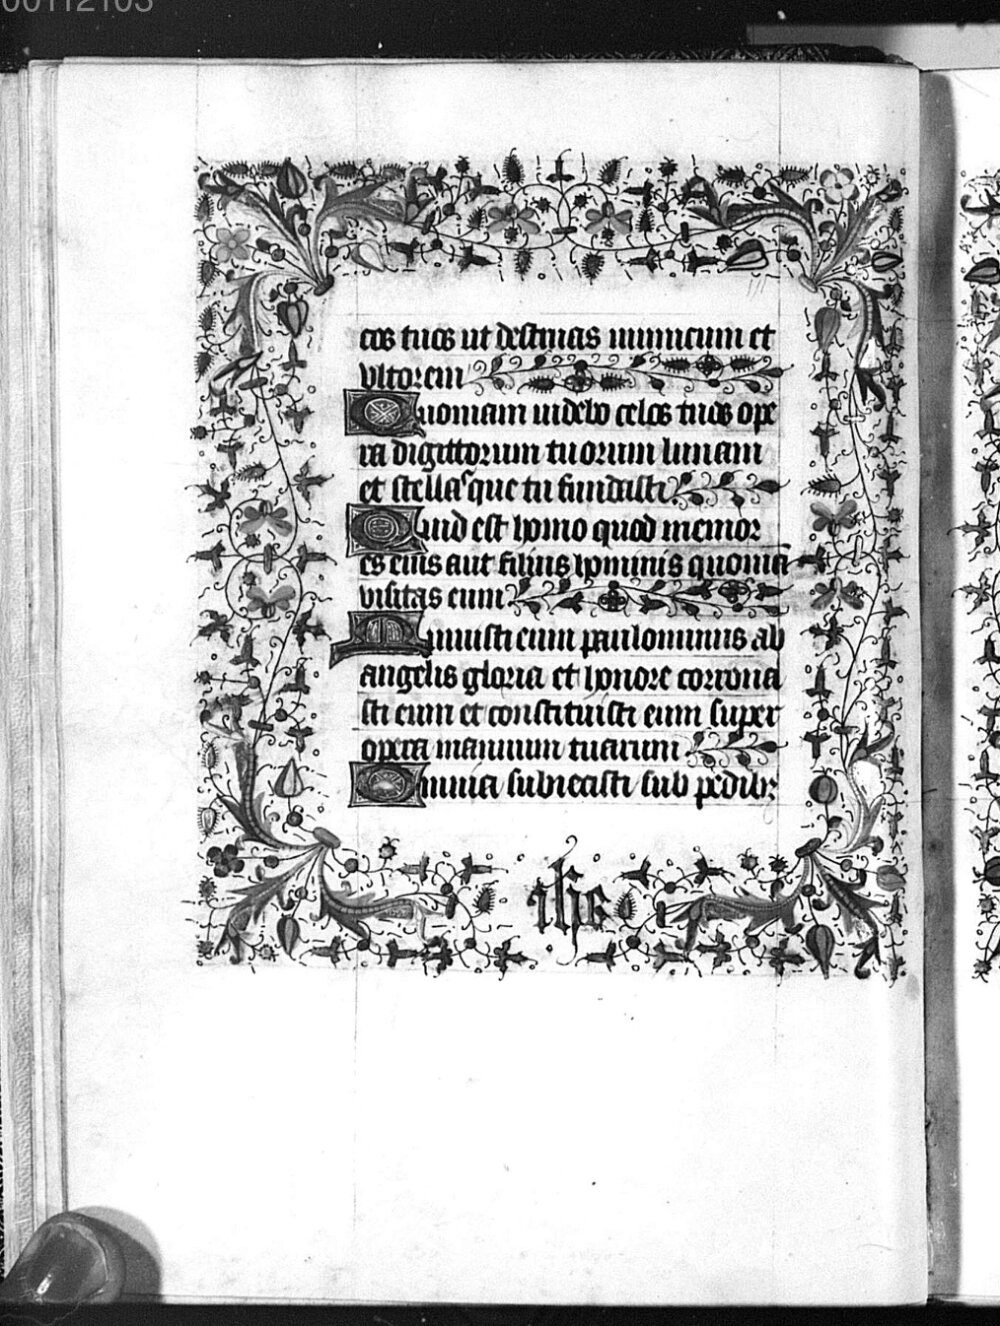 00112103
cos tuos ut destruas inimicum et
vltorem
Quoniam uidebo celos tuos ope
ra digittorum tuorum lunam
et stellas que tu fundasti
Quid est homo quod memor
es eius aut filius hominis quoniā
visitas eum
Minuisti eum paulominus ab
angelis gloria et honore corrona
sti eum et constituisti eum super
opera manuum tuarum
Omnia subiecisti sub pedibꝫ
ihs